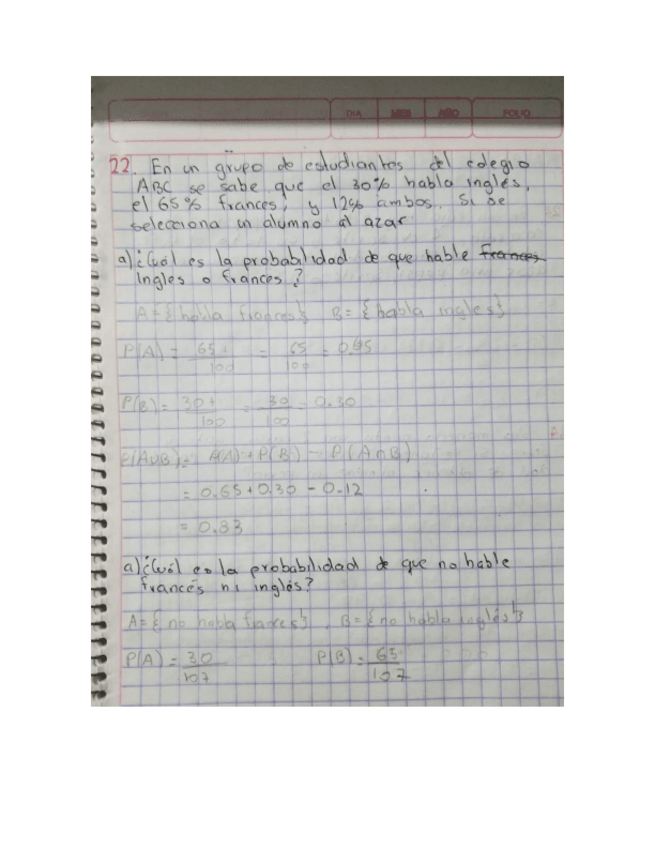 DIA MES AÑO FOLIO
22. En un grupo de estudiantes del colegio
ABC se sabe que el 30% habla inglés,
el 65% frances, y 12% ambos. Si se
selecciona un alumno al azar
a) ¿Cuál es la probabilidad de que hable frances
Ingles o frances?
A = {habla frances} B = {habla ingles}
P(A) = 65/100 = 65/100 = 0.65
P(B) = 30/100 = 30/100 = 0.30
P(AUB) = P(A) + P(B) - P(A∩B)
= 0.65 + 0.30 - 0.12
= 0.83
a) ¿Cuál es la probabilidad de que no hable
francés ni inglés?
A = {no habla frances}, B = {no habla inglés}
P(A) = 30/107 P(B) = 65/107